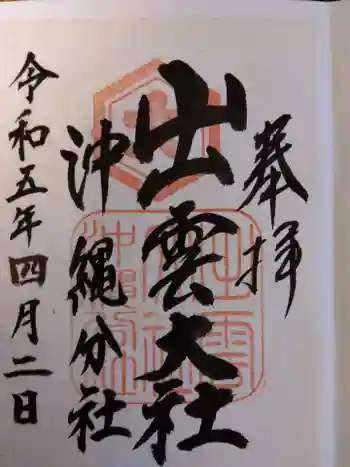 奉拝
出雲大社
沖縄分社
令和五年四月二日